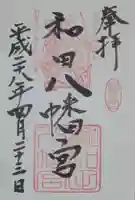 奉拝
和田八幡宮
平成二八年四月二十三日